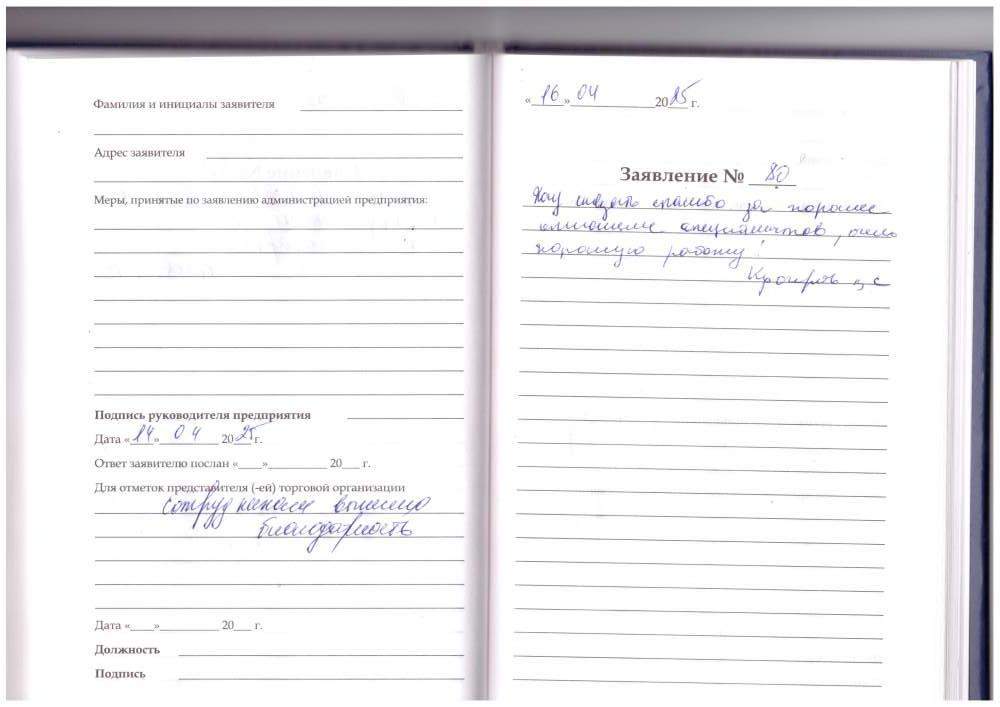 Фамилия и инициалы заявителя
Адрес заявителя
Меры, принятые по заявлению администрацией предприятия:
Подпись руководителя предприятия
Дата «14» 04 2025 г.
Ответ заявителю послан «____»__________ 20___ г.
Для отметок представителя (-ей) торговой организации
сотрудникам вынесена
благодарность
Дата «____»__________ 20___ г.
Должность
Подпись
«16» 04 2025 г.
Заявление № 80
Хочу сказать спасибо за хорошее
отношение специалистов,
хорошую работу!